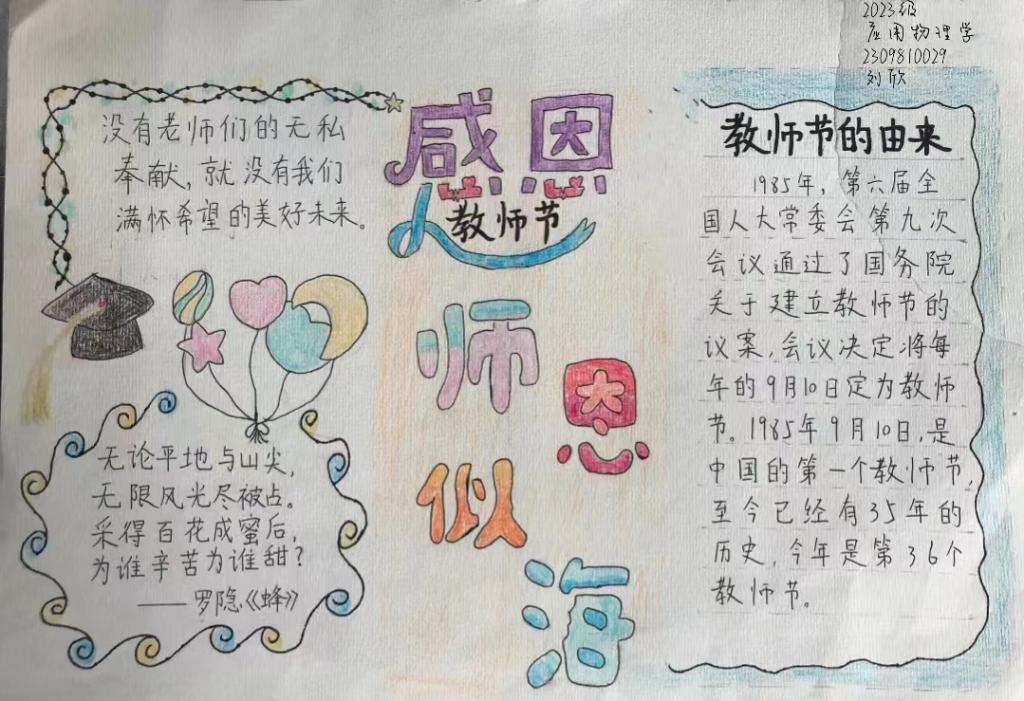 2023级
应用物理学
2309810029
刘欣
没有老师们的无私
奉献,就没有我们
满怀希望的美好未来。
感恩
教师节
师
恩
似
海
无论平地与山尖,
无限风光尽被占。
采得百花成蜜后,
为谁辛苦为谁甜?
——罗隐《蜂》
教师节的由来
1985年,第六届全
国人大常委会第九次
会议通过了国务院
关于建立教师节的
议案,会议决定将每
年的9月10日定为教师
节。1985年9月10日,是
中国的第一个教师节,
至今已经有35年的
历史,今年是第36个
教师节。